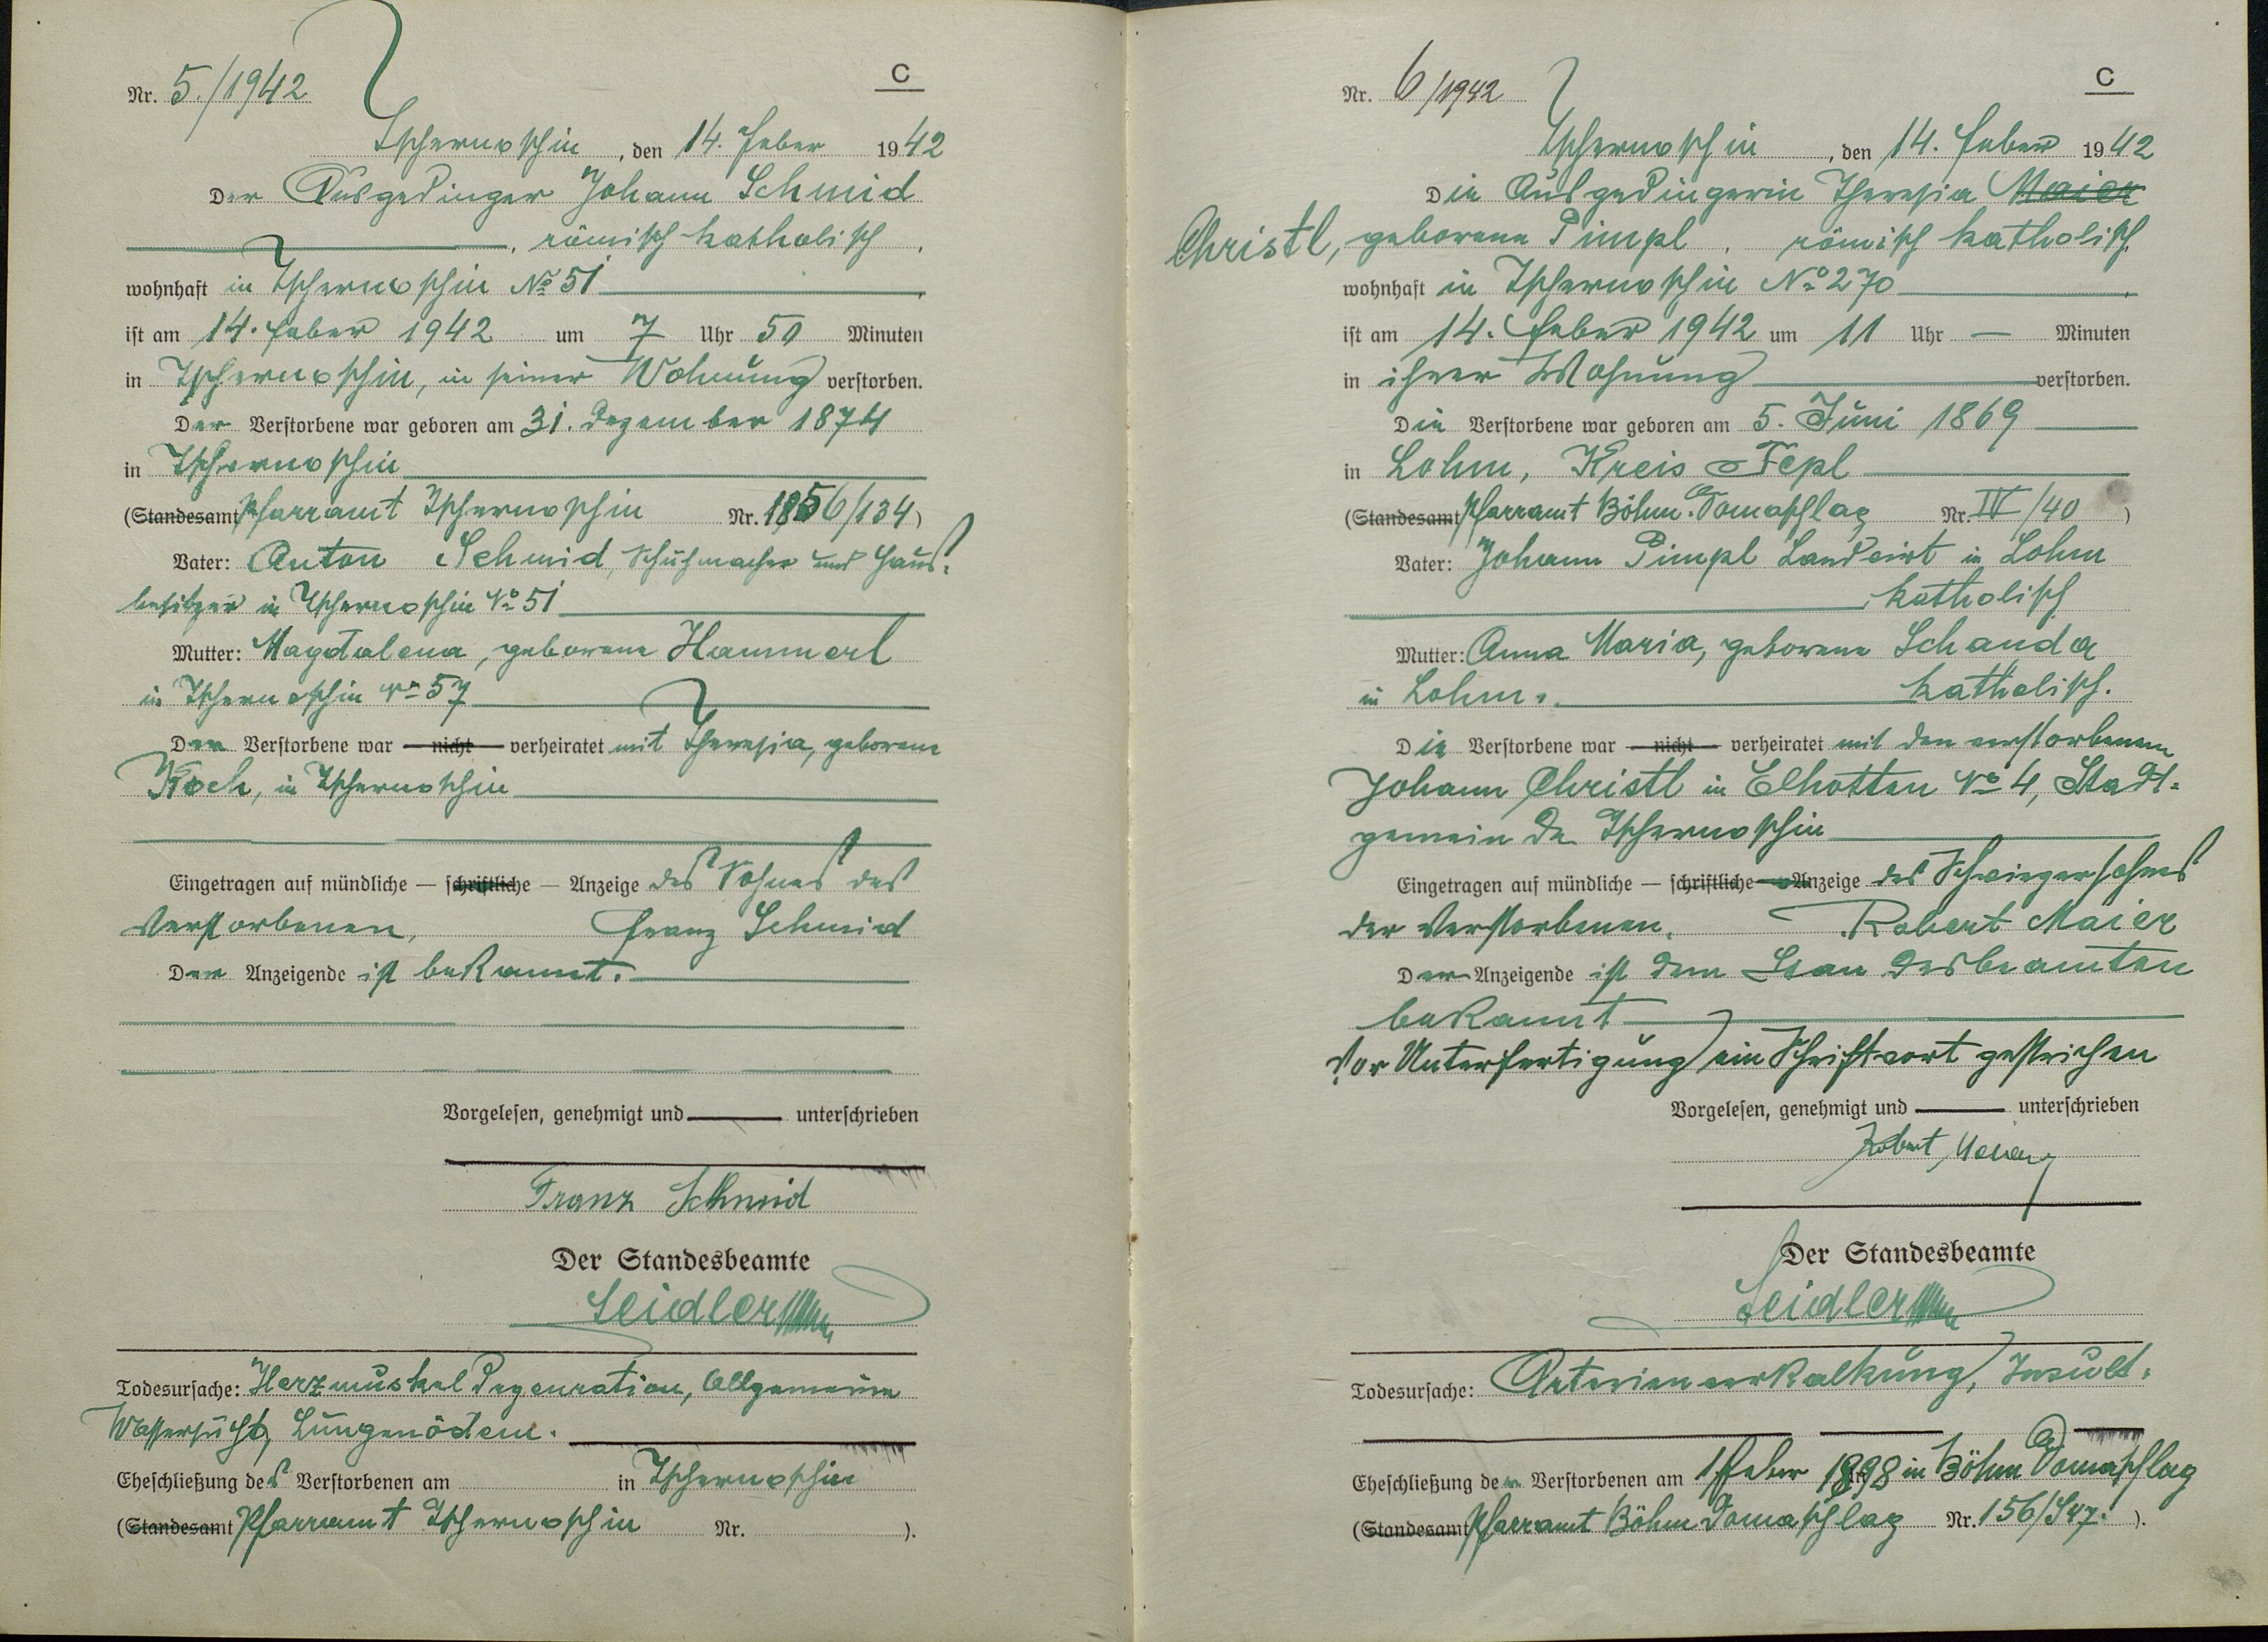 Nr. 5./1942
C
Tschernoschin, den 14. Feber 1942
Der Ausgedinger Johann Schmid
, römisch-katholisch,
wohnhaft in Tschernoschin No 51,
ist am 14. Feber 1942 um 7 Uhr 50 Minuten
in Tschernoschin, in seiner Wohnung verstorben.
Der Verstorbene war geboren am 31. Dezember 1874
in Tschernoschin
(Standesamt Pfarramt Tschernoschin Nr. 1856/134)
Vater: Anton Schmid, Schuhmacher und Haus-
besitzer in Tschernoschin No 51
Mutter: Magdalena, geborene Hammerl
in Tschernoschin No 57
Der Verstorbene war – nicht – verheiratet mit Theresia, geborene
Koch, in Tschernoschin
Eingetragen auf mündliche – schriftliche – Anzeige des Sohnes des
Verstorbenen, Franz Schmid
Der Anzeigende ist bekannt.
Vorgelesen, genehmigt und unterschrieben
Franz Schmid
Der Standesbeamte
Seidler
Todesursache: Herzmuskel Degenration, Allgemeine
Wassersucht, Lungenödem.
Eheschließung des Verstorbenen am in Tschernoschin
(Standesamt Pfarramt Tschernoschin Nr. ).
Nr. 6/1942
C
Tschernoschin, den 14. Feber 1942
Die Ausgedingerin Theresia Maier
Christl, geborene Pimpl, römisch katholisch,
wohnhaft in Tschernoschin No 270,
ist am 14. Feber 1942 um 11 Uhr – Minuten
in ihrer Wohnung verstorben.
Die Verstorbene war geboren am 5. Juni 1869
in Lohm, Kreis Tepl
(Standesamt Pfarramt Böhm. Domaschlag Nr. IV/40)
Vater: Johann Pimpl Landwirt in Lohm
katholisch
Mutter: Anna Maria, geborene Schanda
in Lohm. katholisch.
Die Verstorbene war – nicht – verheiratet mit den verstorbenen
Johann Christl in Elhotten No 4, Stadt-
gemeinde Tschernoschin
Eingetragen auf mündliche – schriftliche – Anzeige des Schwiegersohnes
der Verstorbenen, Robert Maier
Der Anzeigende ist dem Standesbeamten
bekannt
Vor Unterfertigung ein Schriftwort gestrichen
Vorgelesen, genehmigt und unterschrieben
Robert Maier
Der Standesbeamte
Seidler
Todesursache: Arterienverkalkung, Insult.
Eheschließung der Verstorbenen am 1 Feber 1898 in Böhm Domaschlag
(Standesamt Pfarramt Böhm Domaschlag Nr. 156/ ).